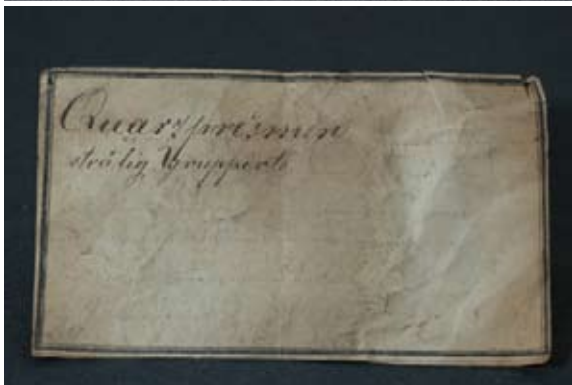 Quarzprismen
strälig gruppert